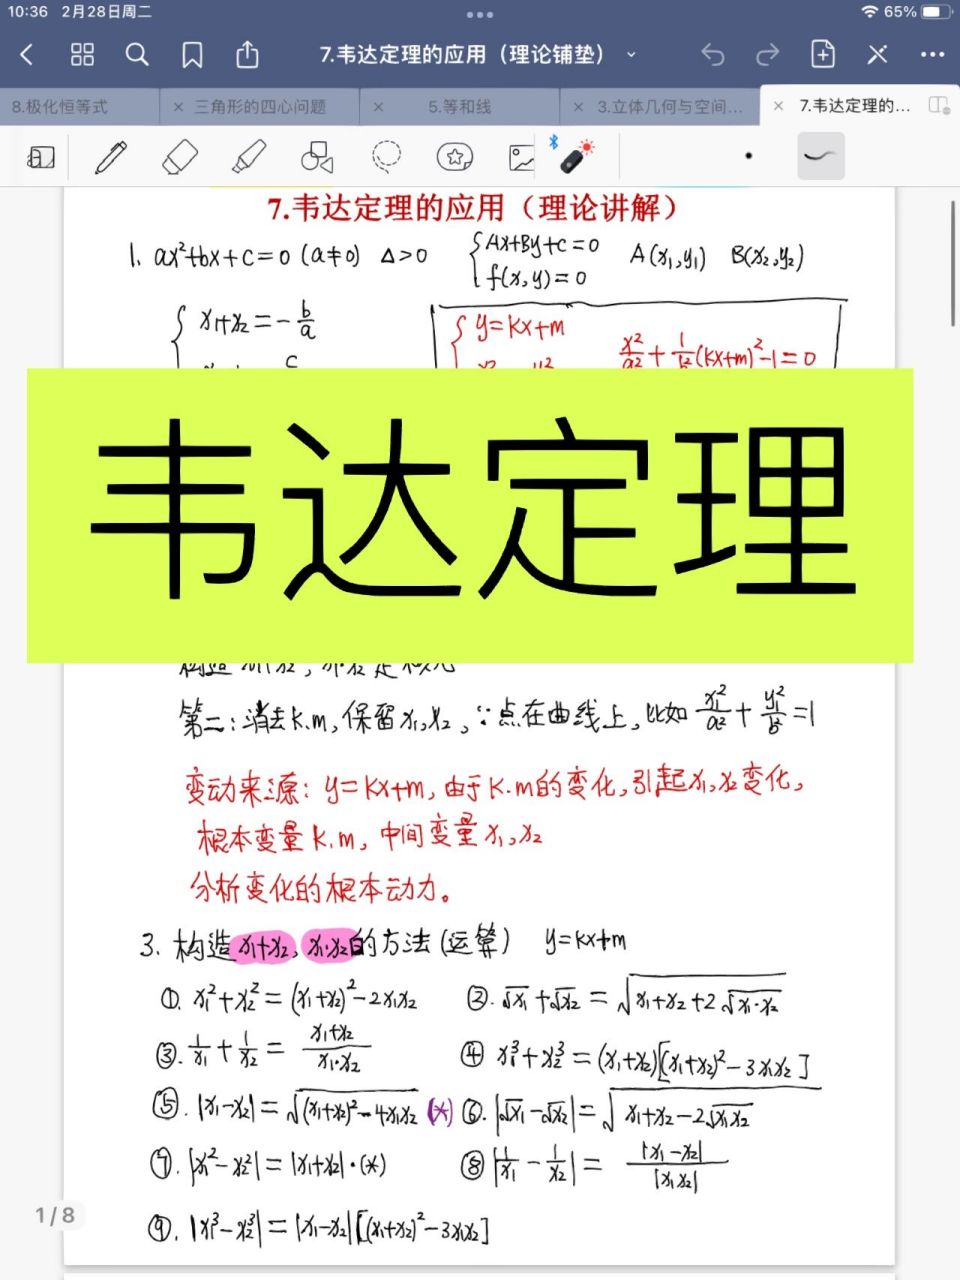 10:36 2月28日周二 65%
7.韦达定理的应用（理论铺垫）
8.极化恒等式 × 三角形的四心问题 × 5.等和线 × 3.立体几何与空间... × 7.韦达定理的...
7.韦达定理的应用（理论讲解）
1. ax²+bx+c=0 (a≠0) Δ>0 { Ax+By+c=0 f(x,y)=0 A(x₁,y₁) B(x₂,y₂)
{ x₁+x₂=-b/a
{ y=kx+m
x²/a²+1/b²(kx+m)²-1=0
韦达定理
第二:消去k.m,保留x₁,x₂,∵点在曲线上,比如 x₁²/a²+y₁²/b²=1
变动来源: y=kx+m,由于k.m的变化,引起x₁,x₂变化,
根本变量k.m, 中间变量x₁,x₂
分析变化的根本动力。
3. 构造x₁+x₂, x₁·x₂的方法(运算) y=kx+m
①. x₁²+x₂²=(x₁+x₂)²-2x₁x₂ ②. √x₁+√x₂=√(x₁+x₂+2√(x₁·x₂))
③. 1/x₁+1/x₂=(x₁+x₂)/(x₁·x₂) ④ x₁³+x₂³=(x₁+x₂)[(x₁+x₂)²-3x₁x₂]
⑤. |x₁-x₂|=√((x₁+x₂)²-4x₁x₂) (*) ⑥. |√x₁-√x₂|=√(x₁+x₂-2√(x₁x₂))
⑦. |x₁²-x₂²|=|x₁+x₂|·(*) ⑧ |1/x₁-1/x₂|=|x₁-x₂|/|x₁x₂|
⑨. |x₁³-x₂³|=|x₁-x₂|[(x₁+x₂)²-3x₁x₂]
1/8